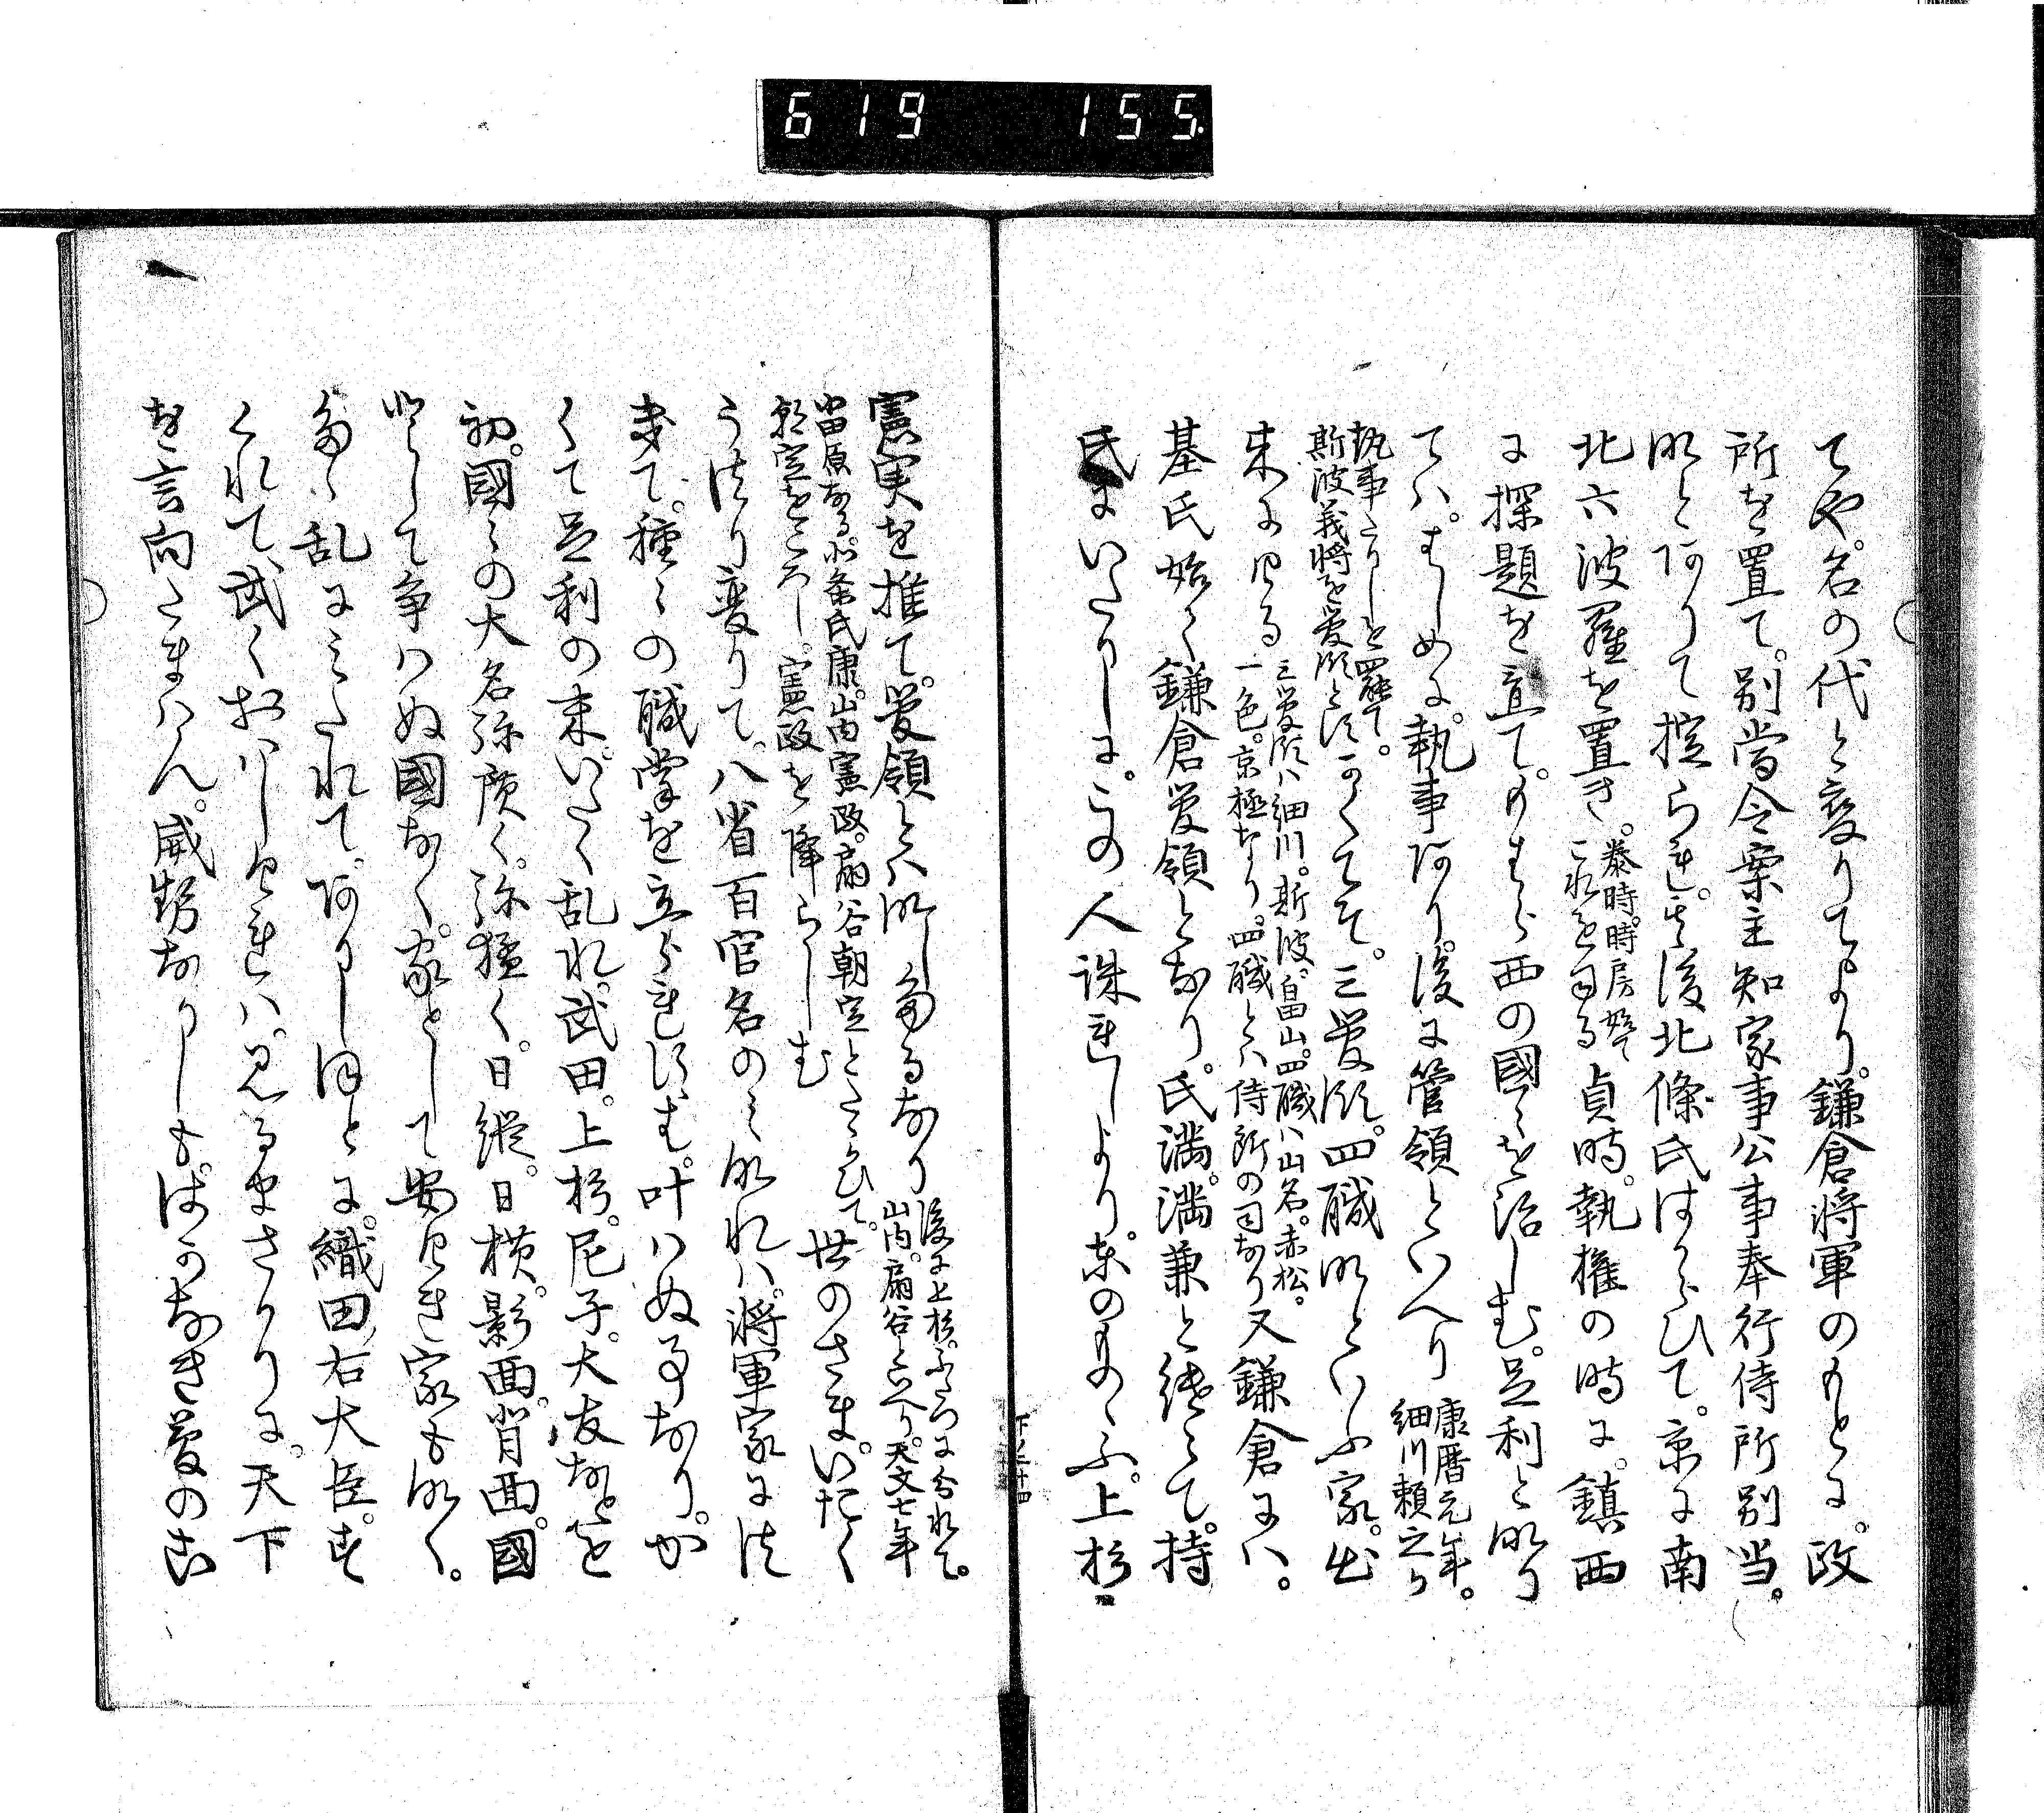 619 155
てや。名の代と変りてより。鎌倉将軍のもとに。政
所を置て。別当令案主知家事公事奉行侍所別当。
なとありて掟られ。其後北條氏はからひて。京に南
北六波羅を置き。
泰時。時房始て
これを司る
貞時。執権の時に。鎮西
に探題を立て。のすら西の國々を治しむ。足利となり
ては。はしめに。執事あり。後に管領といへり
康暦元年。
細川頼之か
執事たりしを罷て。
斯波義将を管領とす
かくてそ。三管領。四職なといふ家。出
来にける
三管領ハ細川。斯波。畠山。四職ハ山名。赤松。
一色。京極なり。四職とハ侍所の司なり
又鎌倉にハ。
基氏始て鎌倉管領となり。氏満。満兼と継きて。持
氏にいたりしに。この人誅れしより。東のものゝふ。上杉
下之十四
憲実を推て。管領とハなしたるなり
後に上杉。ふたつに分れて。
山内。扇谷といへり。天文七年
小田原なる。北条氏康。山内憲政。扇谷朝定とたゝかひて。
朝定をころし。憲政を降らしむ
世のさま。いたく
うつり変りて。八省百官名のみなれハ。将軍家にす
まて。種々の職掌を立られすは。叶ハぬ事なり。か
くて足利の末。いたく乱れ。武田。上杉。尼子。大友なとを
初。國々の大名弥廣く。弥猛く。日縦。日横。影面。背面。國
として争ハぬ國なく。家として安けき家もなく。
たゝ乱にみたれて。ありしほとに。織田右大臣。す
くれて。武くおハしけれハ。見るまさかりに。天下
を言向たまはん。威勢なりしも。はかなき夢のこ